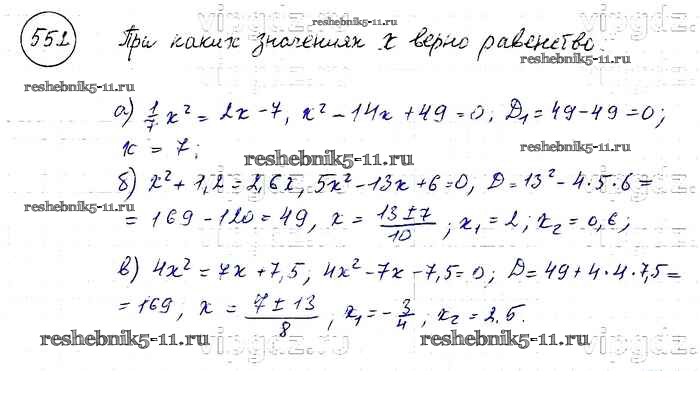 552 При каких значениях x верно равенство.
а) 1/7 x² = 2x - 7, x² - 14x + 49 = 0; D₁ = 49 - 49 = 0;
x = 7;
б) x² + 1,2 = 2,6x, 5x² - 13x + 6 = 0, D = 13² - 4·5·6 =
= 169 - 120 = 49, x = (13 ± 7)/10; x₁ = 2; x₂ = 0,6;
в) 4x² = 7x + 7,5, 4x² - 7x - 7,5 = 0; D = 49 + 4·4·7,5 =
= 169, x = (7 ± 13)/8, x₁ = -3/4, x₂ = 2.5.
reshebnik5-11.ru
reshebnik5-11.ru
reshebnik5-11.ru
reshebnik5-11.ru
reshebnik5-11.ru
reshebnik5-11.ru
reshebnik5-11.ru
vipgdz.ru
vipgdz.ru
vipgdz.ru
vipgdz.ru